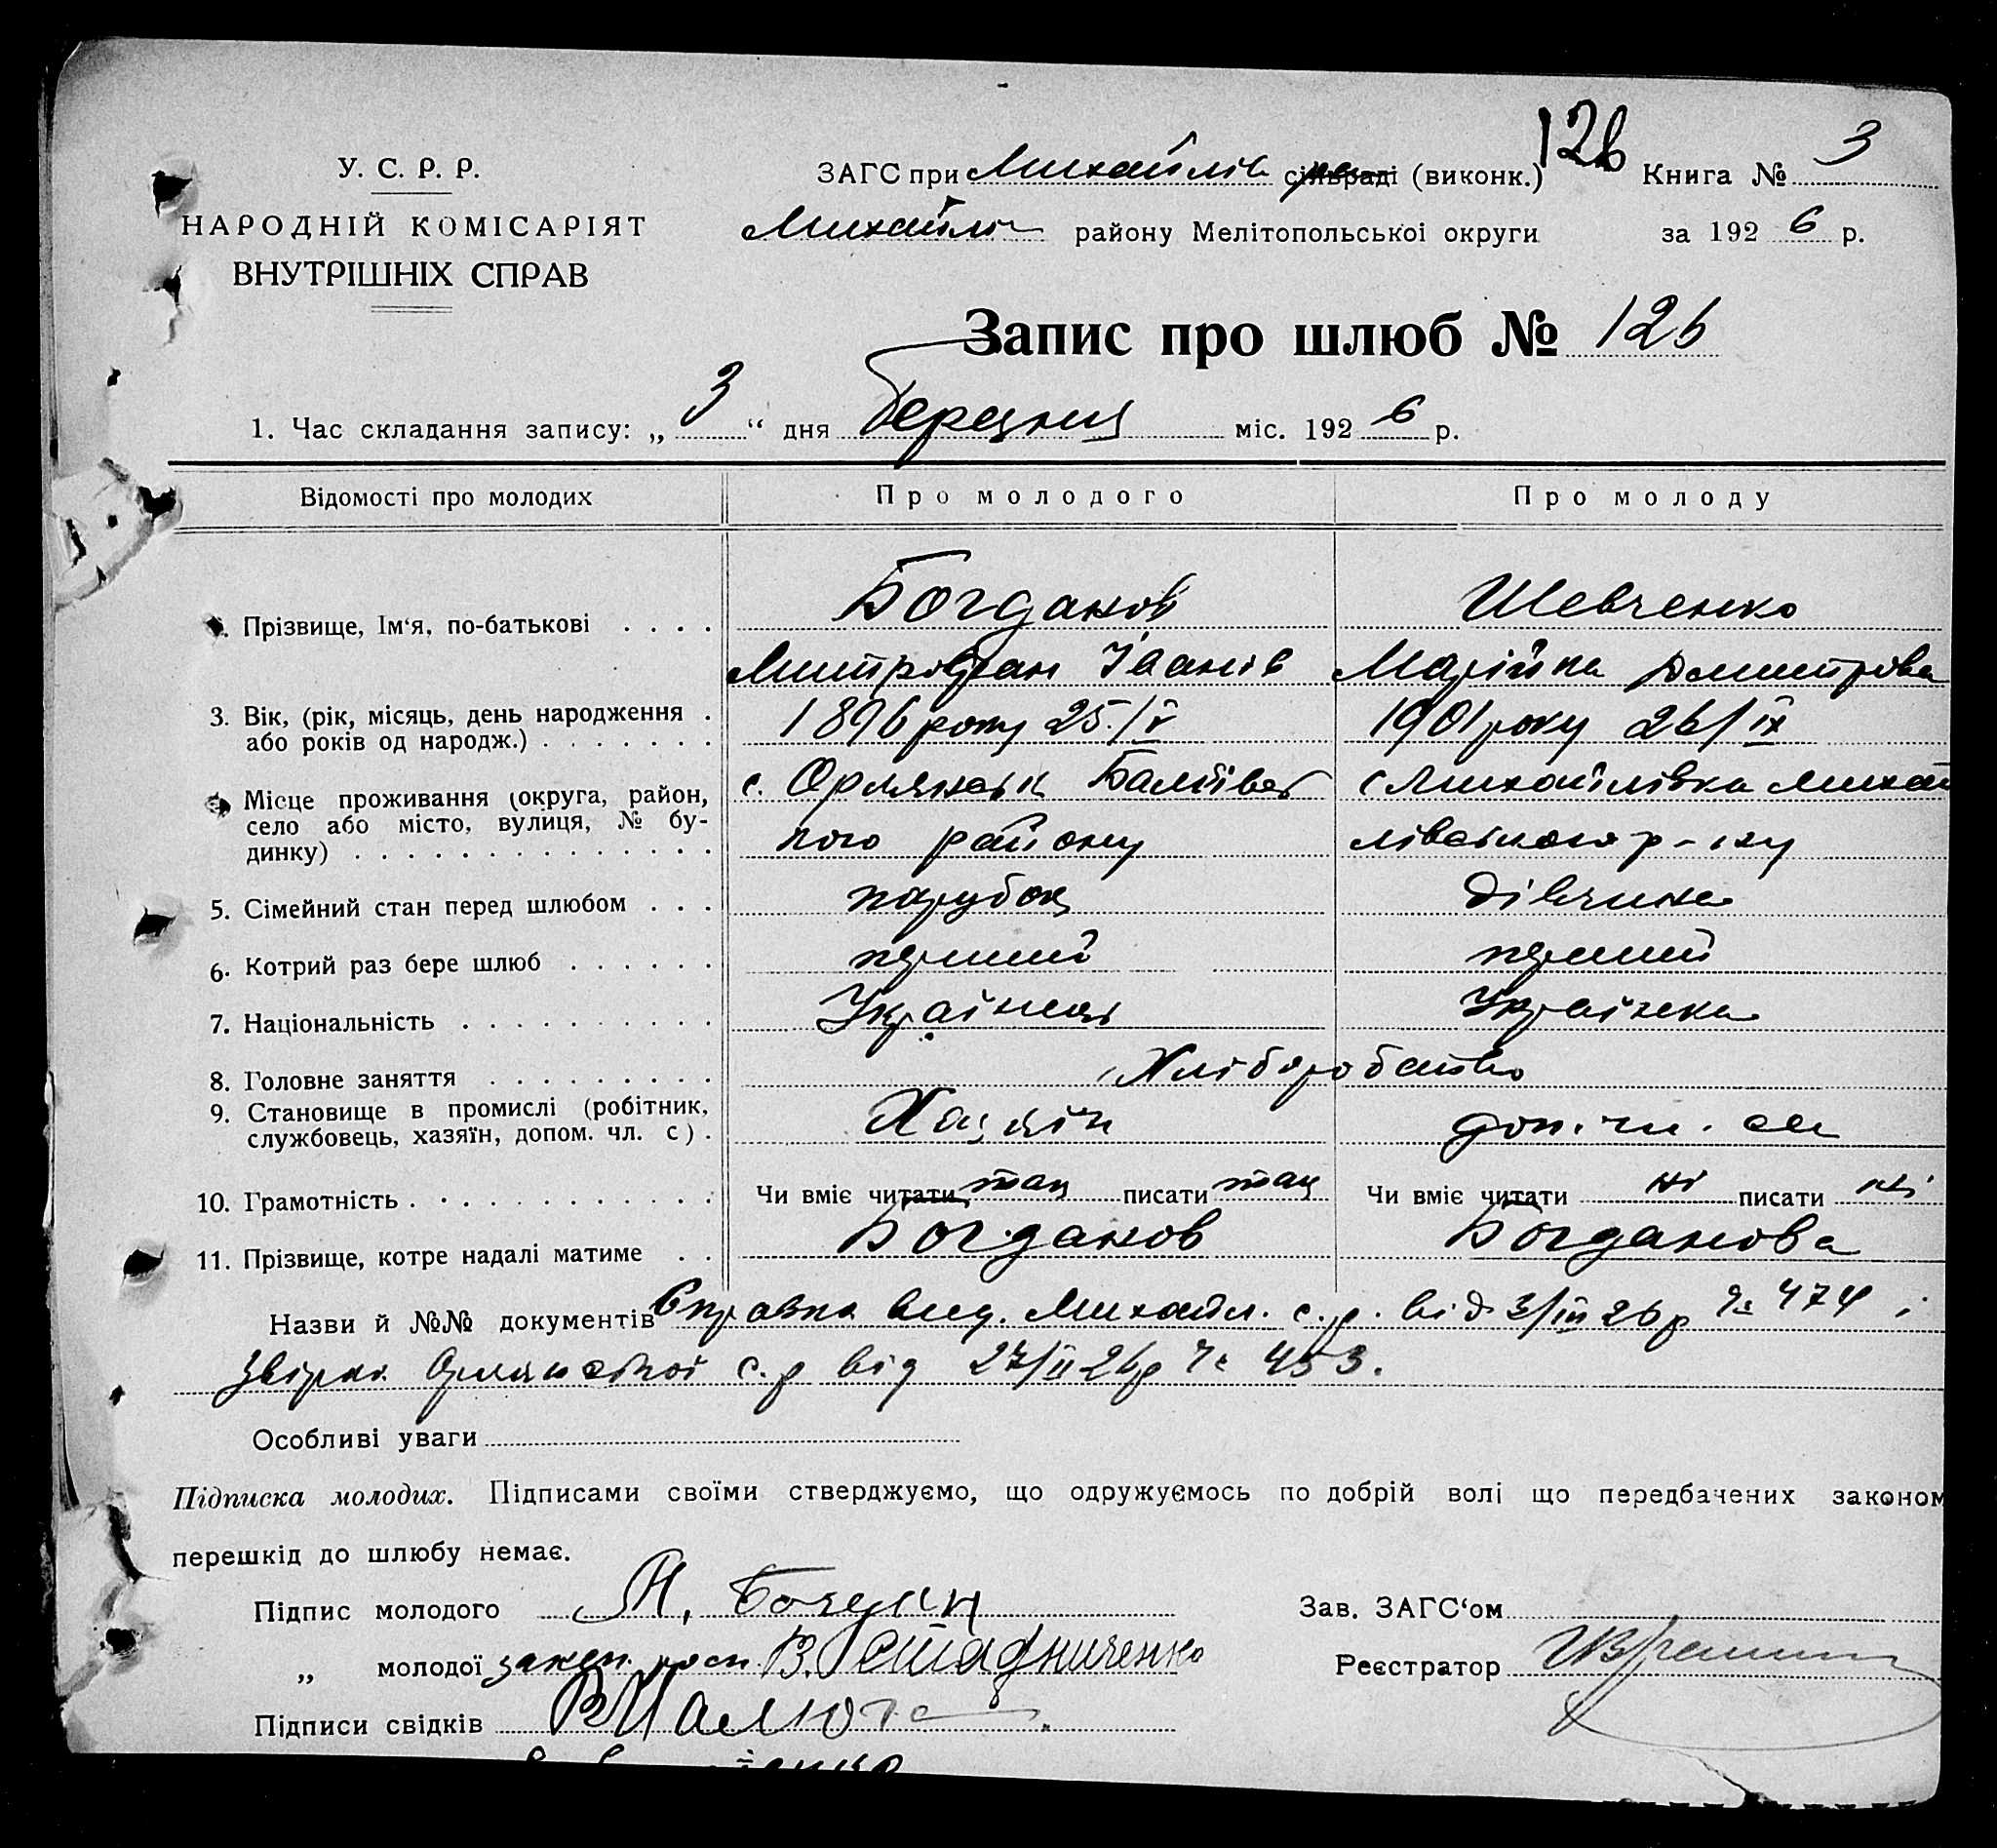 126
У. С. Р. Р.
ЗАГС при Михайлів сільраді (виконк.) Книга № 3
НАРОДНІЙ КОМІСАРІЯТ
Михайлів району Мелітопольської округи за 1926 р.
ВНУТРІШНІХ СПРАВ
Запис про шлюб № 126
1. Час складання запису: „3“ дня березня міс. 1926 р.
Відомості про молодих Про молодого Про молоду
Прізвище, Ім‘я, по-батькові . . . . Богданов Шевченко
Митрофан Іванів Марійка Дмитрова
3. Вік, (рік, місяць, день народження . 1896 року 25/V 1901 року 26/IX
або років од народж.) . . . . . . .
Місце проживання (округа, район, с. Орлянськ Балківсь с Михайлівка Михай
село або місто, вулиця, № бу-
динку) . . . . . . . . . . . . . . кого району лівського р-ну
5. Сімейний стан перед шлюбом . . . парубок дівчина
6. Котрий раз бере шлюб . . . . . . перший перший
7. Національність . . . . . . . . . . Українець Українка
8. Головне заняття . . . . . . . . . Хліборобство
9. Становище в промислі (робітник, Хазяїн доп. чл. сем
службовець, хазяїн, допом. чл. с) .
10. Грамотність . . . . . . . . . . . . Чи вміє читати так писати так Чи вміє читати ні писати ні
11. Прізвище, котре надалі матиме . . Богданов Богданова
Назви й №№ документів Справка вид. Михайл. с.р. від 3/III 26р № 474 і
Орлянської с.р від 27/II 26р № 453.
Особливі уваги
Підписка молодих. Підписами своїми стверджуємо, що одружуємось по добрій волі що передбачених законом
перешкід до шлюбу немає.
Підпис молодого М. Богдан Зав. ЗАГС‘ом
„ молодої В. Реєстратор
Підписи свідків